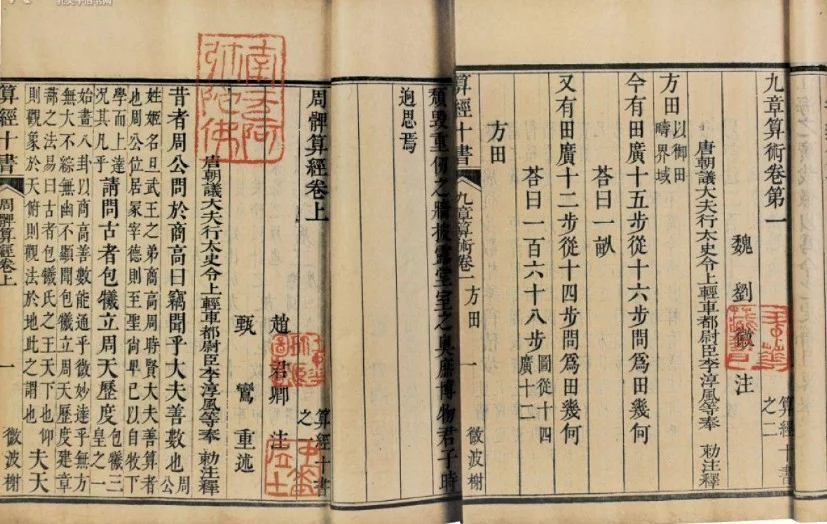 九章算術卷第一
算經十書之二
魏劉徽注
唐朝議大夫行太史令上輕車都尉臣李淳風等奉 勅注釋
方田 以御田疇界域
今有田廣十五步從十六步問爲田幾何
荅曰一畝
又有田廣十二步從十四步問爲田幾何
荅曰一百六十八步 圖從十四廣十二
方田
算經十書 九章算術卷一 方田 一 微波榭
頹毀重仞之牆披露堂室之奥庶博物君子時
迥思焉
周髀算經卷上
算經十書之一
趙君卿 注
甄鸞 重述
唐朝議大夫行太史令上輕車都尉臣李淳風等奉 勅注釋
昔者周公問於商高曰竊聞乎大夫善數也 周公
姓姬名旦武王之弟商高周時賢大夫善算者
也周公位居冢宰德則至聖尚卑己以自牧下
學而上達況其凡乎 請問古者包犧立周天歷度 包犧三皇之一
始畫八卦以商高善數能通乎微妙達乎無方
無大不綜無幽不顯聞包犧立周天歷度建章
蔀之法易曰古者包犧氏之王天下也仰
則觀象於天俯則觀法於地此之謂也 夫天
算經十書 周髀算經卷上 一 微波榭
南无阿弥陀佛